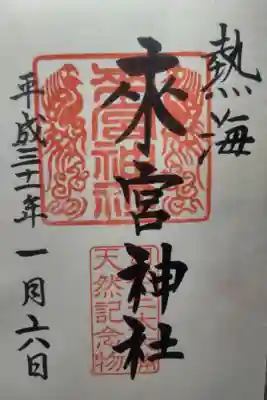 熱海
来宮神社
平成三十一年一月六日
來宮神社
天然記念物